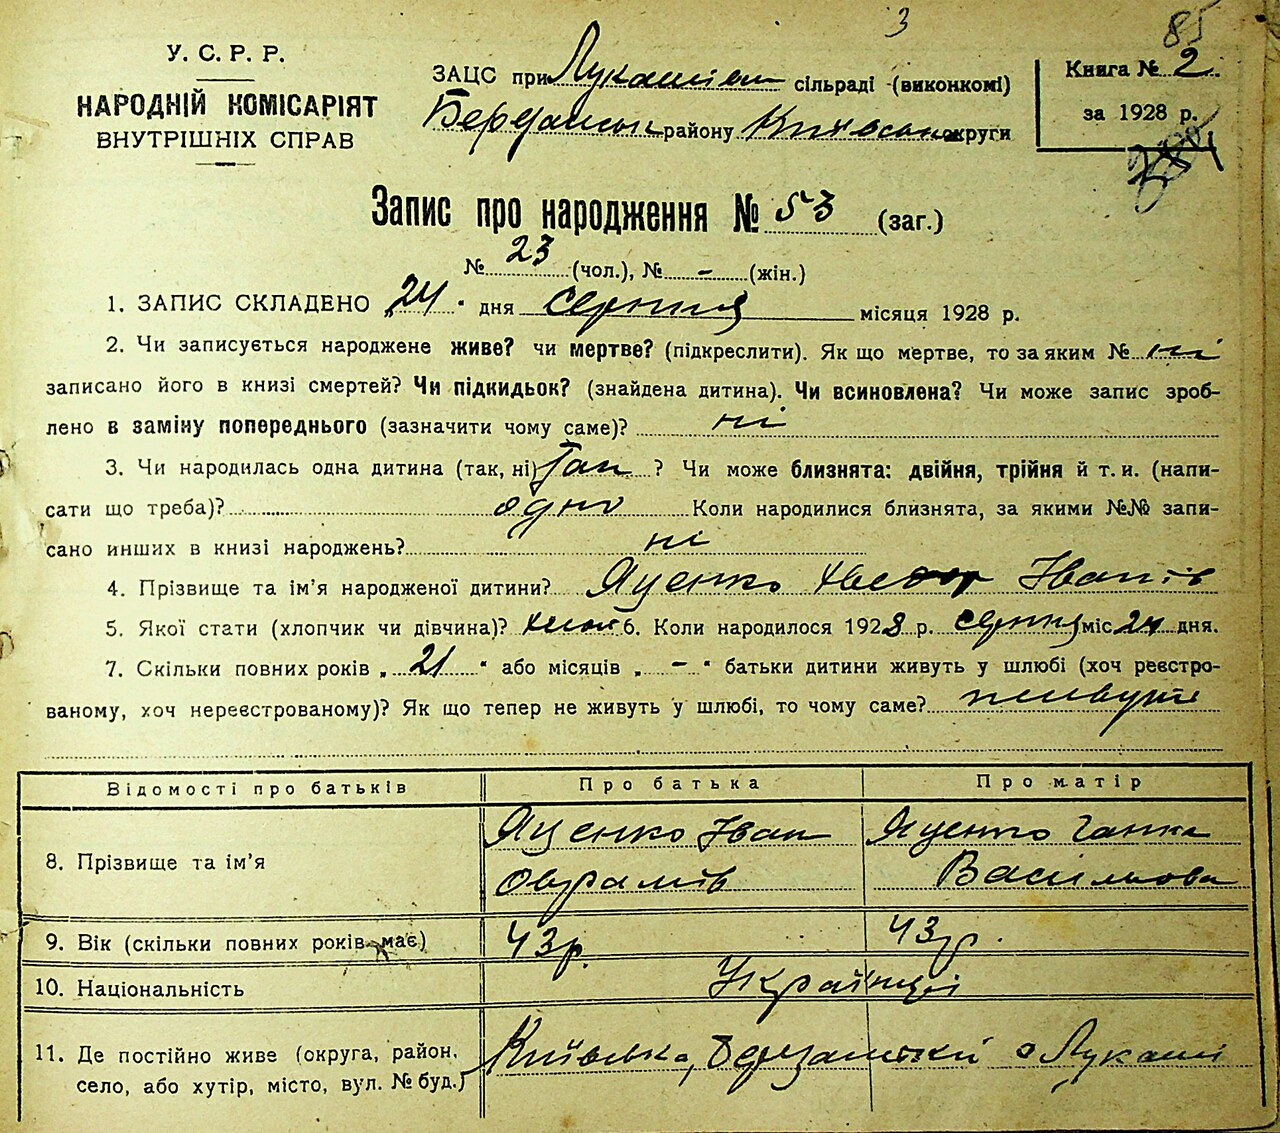 3
85
У. С. Р. Р.
НАРОДНІЙ КОМІСАРІЯТ
ВНУТРІШНІХ СПРАВ
ЗАЦС при Лукашівск сільраді (виконкомі)
Березанськ району Київської округи
Книга № 2.
за 1928 р.
Запис про народження № 53 (заг.)
№ 23 (чол.), № - (жін.)
1. ЗАПИС СКЛАДЕНО „24" дня серпня місяця 1928 р.
2. Чи записується народжене живе? чи мертве? (підкреслити). Як що мертве, то за яким № ні
записано його в книзі смертей? Чи підкидьок? (знайдена дитина). Чи всиновлена? Чи може запис зроб-
лено в заміну попереднього (зазначити чому саме)? ні
3. Чи народилась одна дитина (так, ні) Так ? Чи може близнята: двійня, трійня й т. и. (напи-
сати що треба)? одно Коли народилися близнята, за якими №№ запи-
сано инших в книзі народжень? ні
4. Прізвище та ім'я народженої дитини? Яценко Іванів
5. Якої стати (хлопчик чи дівчина)? 6. Коли народилося 1928 р. серпня міс 24 дня.
7. Скільки повних років „21" або місяців „-" батьки дитини живуть у шлюбі (хоч реєстро-
ваному, хоч нереєстрованому)? Як що тепер не живуть у шлюбі, то чому саме? живуть
Відомості про батьків Про батька Про матір
8. Прізвище та ім'я Яценко Іван Оврамів Яценко Ганка Василькова
9. Вік (скільки повних років має) 43р. 43р.
10. Національність Українці
11. Де постійно живе (округа, район, село, або хутір, місто, вул. № буд.) Київська, Березанський с Лукаші